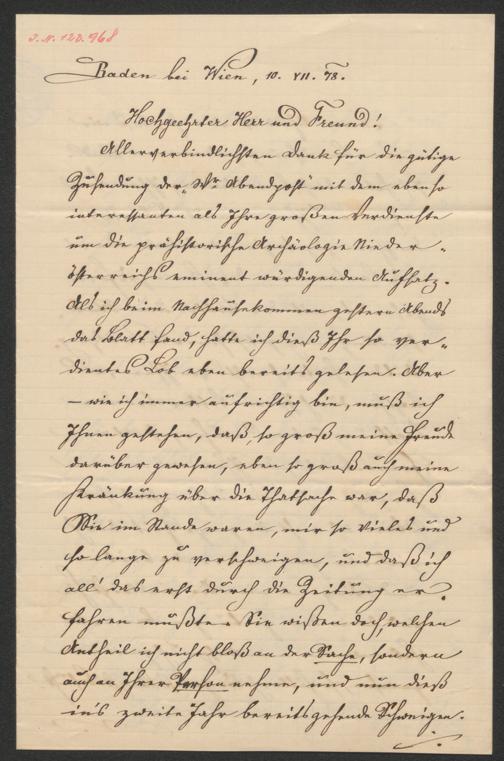 J. N. 120.968
Baden bei Wien, 10. VII. 78.
Hochgeehrter Herr und Freund!
Allerverbindlichsten Dank für die gütige
Zusendung der „Wr Abendpost" mit dem ebenso
interessanten als Ihre großen Verdienste
um die prähistorische Archäologie Nieder„
österreichs eminent würdigenden Aufsatz.
Als ich beim Nachhausekommen gestern Abends
das Blatt fand, hatte ich dieß Ihr so ver„
dientes Lob eben bereits gelesen. Aber
– wie ich immer aufrichtig bin, muß ich
Ihnen gestehen, daß, so groß meine Freude
darüber gewesen, eben so groß auch meine
Kränkung über die Thatsache war, daß
Sie im Stande waren, mir so Vieles und
so lange zu verschweigen, und daß ich
all' das erst durch die Zeitung er„
fahren mußte. Sie wißen doch, welchen
Antheil ich nicht bloß an der Sache, sondern
auch an Ihrer Person nehme, und nun dieß
in's zweite Jahr bereits gehende Schweigen.